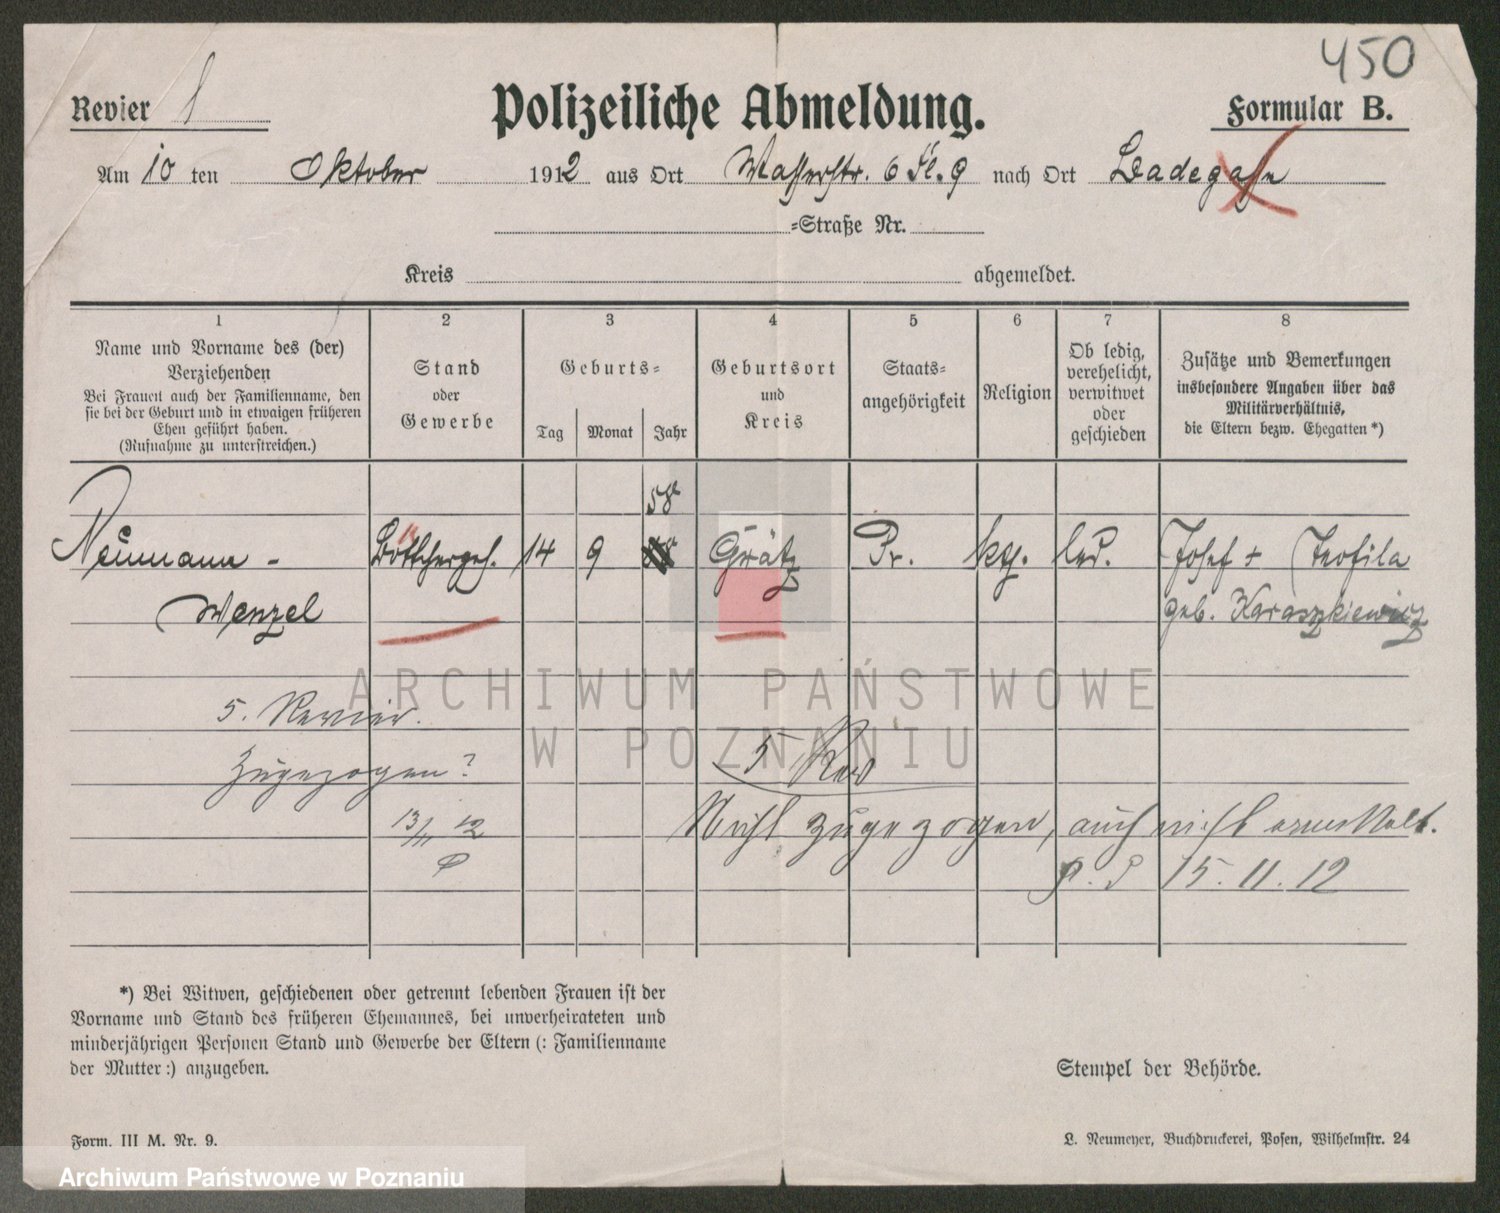 450
Revier 1
Polizeiliche Abmeldung.
Formular B.
Am 10 ten Oktober 1912 aus Ort Wasserstr. 6 nach Ort Ladegasse
-Straße Nr.
Kreis abgemeldet.
1 2 3 4 5 6 7 8
Name und Vorname des (der)
Verziehenden
Bei Frauen auch der Familienname, den
sie bei der Geburt und in etwaigen früheren
Ehen geführt haben.
(Rufname zu unterstreichen.)
Stand
oder
Gewerbe
Geburts-
Tag Monat Jahr
Geburtsort
und
Kreis
Staats-
angehörigkeit
Religion
Ob ledig,
verehelicht,
verwitwet
oder
geschieden
Zusätze und Bemerkungen
insbesondere Angaben über das
Militärverhältnis,
die Eltern bezw. Ehegatten*)
58
Neumann - Böttcherges. 14 9 Grätz Pr. kth. led. Josef + Teofila
Wenzel geb. Karaszkiewicz
ARCHIWUM PAŃSTWOWE
W POZNANIU
5. Revier.
Zugezogen?
13/11 12
5 Rev
Nicht zugezogen, auch nicht ermittelt.
15. 11. 12
*) Bei Witwen, geschiedenen oder getrennt lebenden Frauen ist der
Vorname und Stand des früheren Ehemannes, bei unverheirateten und
minderjährigen Personen Stand und Gewerbe der Eltern (: Familienname
der Mutter :) anzugeben.
Stempel der Behörde.
Form. III M. Nr. 9.
L. Neumeyer, Buchdruckerei, Posen, Wilhelmstr. 24
Archiwum Państwowe w Poznaniu